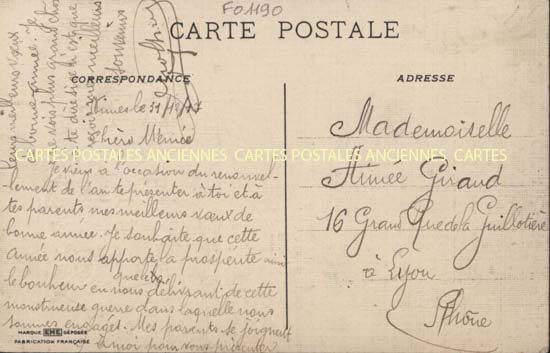 FO1190
CARTE POSTALE
CORRESPONDANCE
ADRESSE
Nîmes le 31/12/17
Chère Aimée
CARTES POSTALES ANCIENNES CARTES POSTALES ANCIENNES CARTES
Je viens à l'occasion du renouvel-
lement de l'an te présenter à toi et à
tes parents mes meilleurs vœux de
bonne année. Je souhaite que cette
année nous apporte la prospérité ainsi
que
le bonheur en nous délivrant de cette
monstrueuse guerre dans laquelle nous
sommes engagés. Mes parents se joignent
à moi pour vous présenter
leurs meilleurs vœux
de bonne année. Je
ne vois plus grand chose
à te dire si ce n'est que
reçois mes meilleurs
souvenirs
Mademoiselle
Aimée Giraud
16 Grand Rue de la Guillotière
à Lyon
Rhône
MARQUE EME DÉPOSÉE
FABRICATION FRANÇAISE